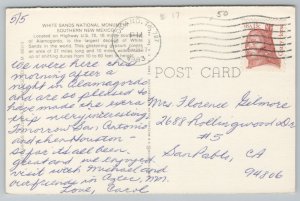 5/5
# 17
50
WHITE SANDS NATIONAL MONUMENT
SOUTHERN NEW MEXICO
Located on Highway U.S. 70, 15 miles southwest
of Alamogordo, is the largest deposit of White
Sands in the world. This glistening gypsum covers
an area of 27 miles long and 10 miles wide, with
drifting dunes from 10 to 60 feet high.
1983
POST CARD
We were here this
morning after a
night in Alamogordo
and are so pleased to
have made the extra
trip - very interesting.
Tomorrow San Antonio
and then Houston -
so far its all been
great and we enjoyed
visit with Michael and
our friends in
Love, Carol
Mrs Florence Gilmore
2688 Rollingwood Dr.
#5
San Pablo, CA
94806